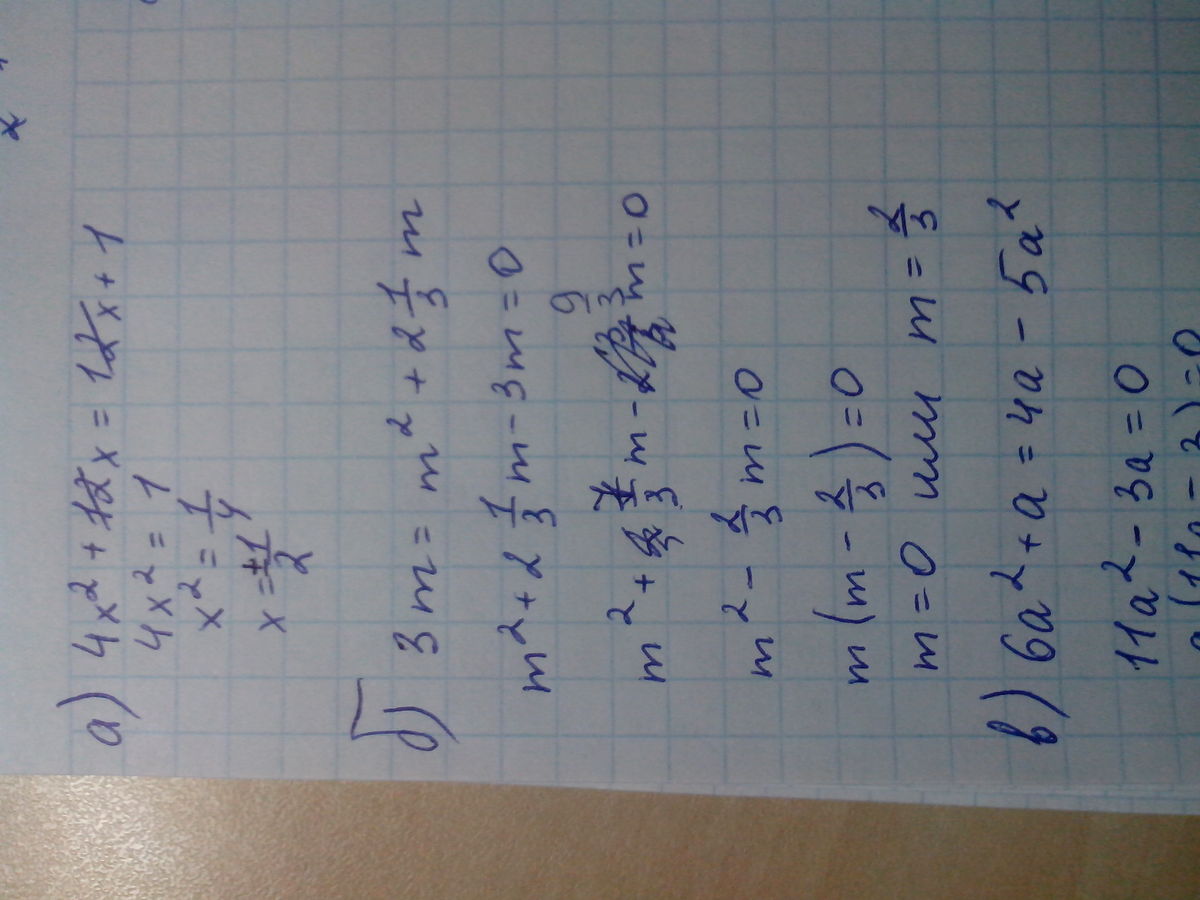 x
а) 4x² + 12x = 12x + 1
4x² = 1
x² = 1/4
x = ±1/2
б) 3m = m² + 2 1/3 m
m² + 2 1/3 m - 3m = 0
m² + 7/3 m - 9/3 m = 0
m² - 2/3 m = 0
m (m - 2/3) = 0
m = 0 или m = 2/3
в) 6a² + a = 4a - 5a²
11a² - 3a = 0
a(11a - 3) = 0